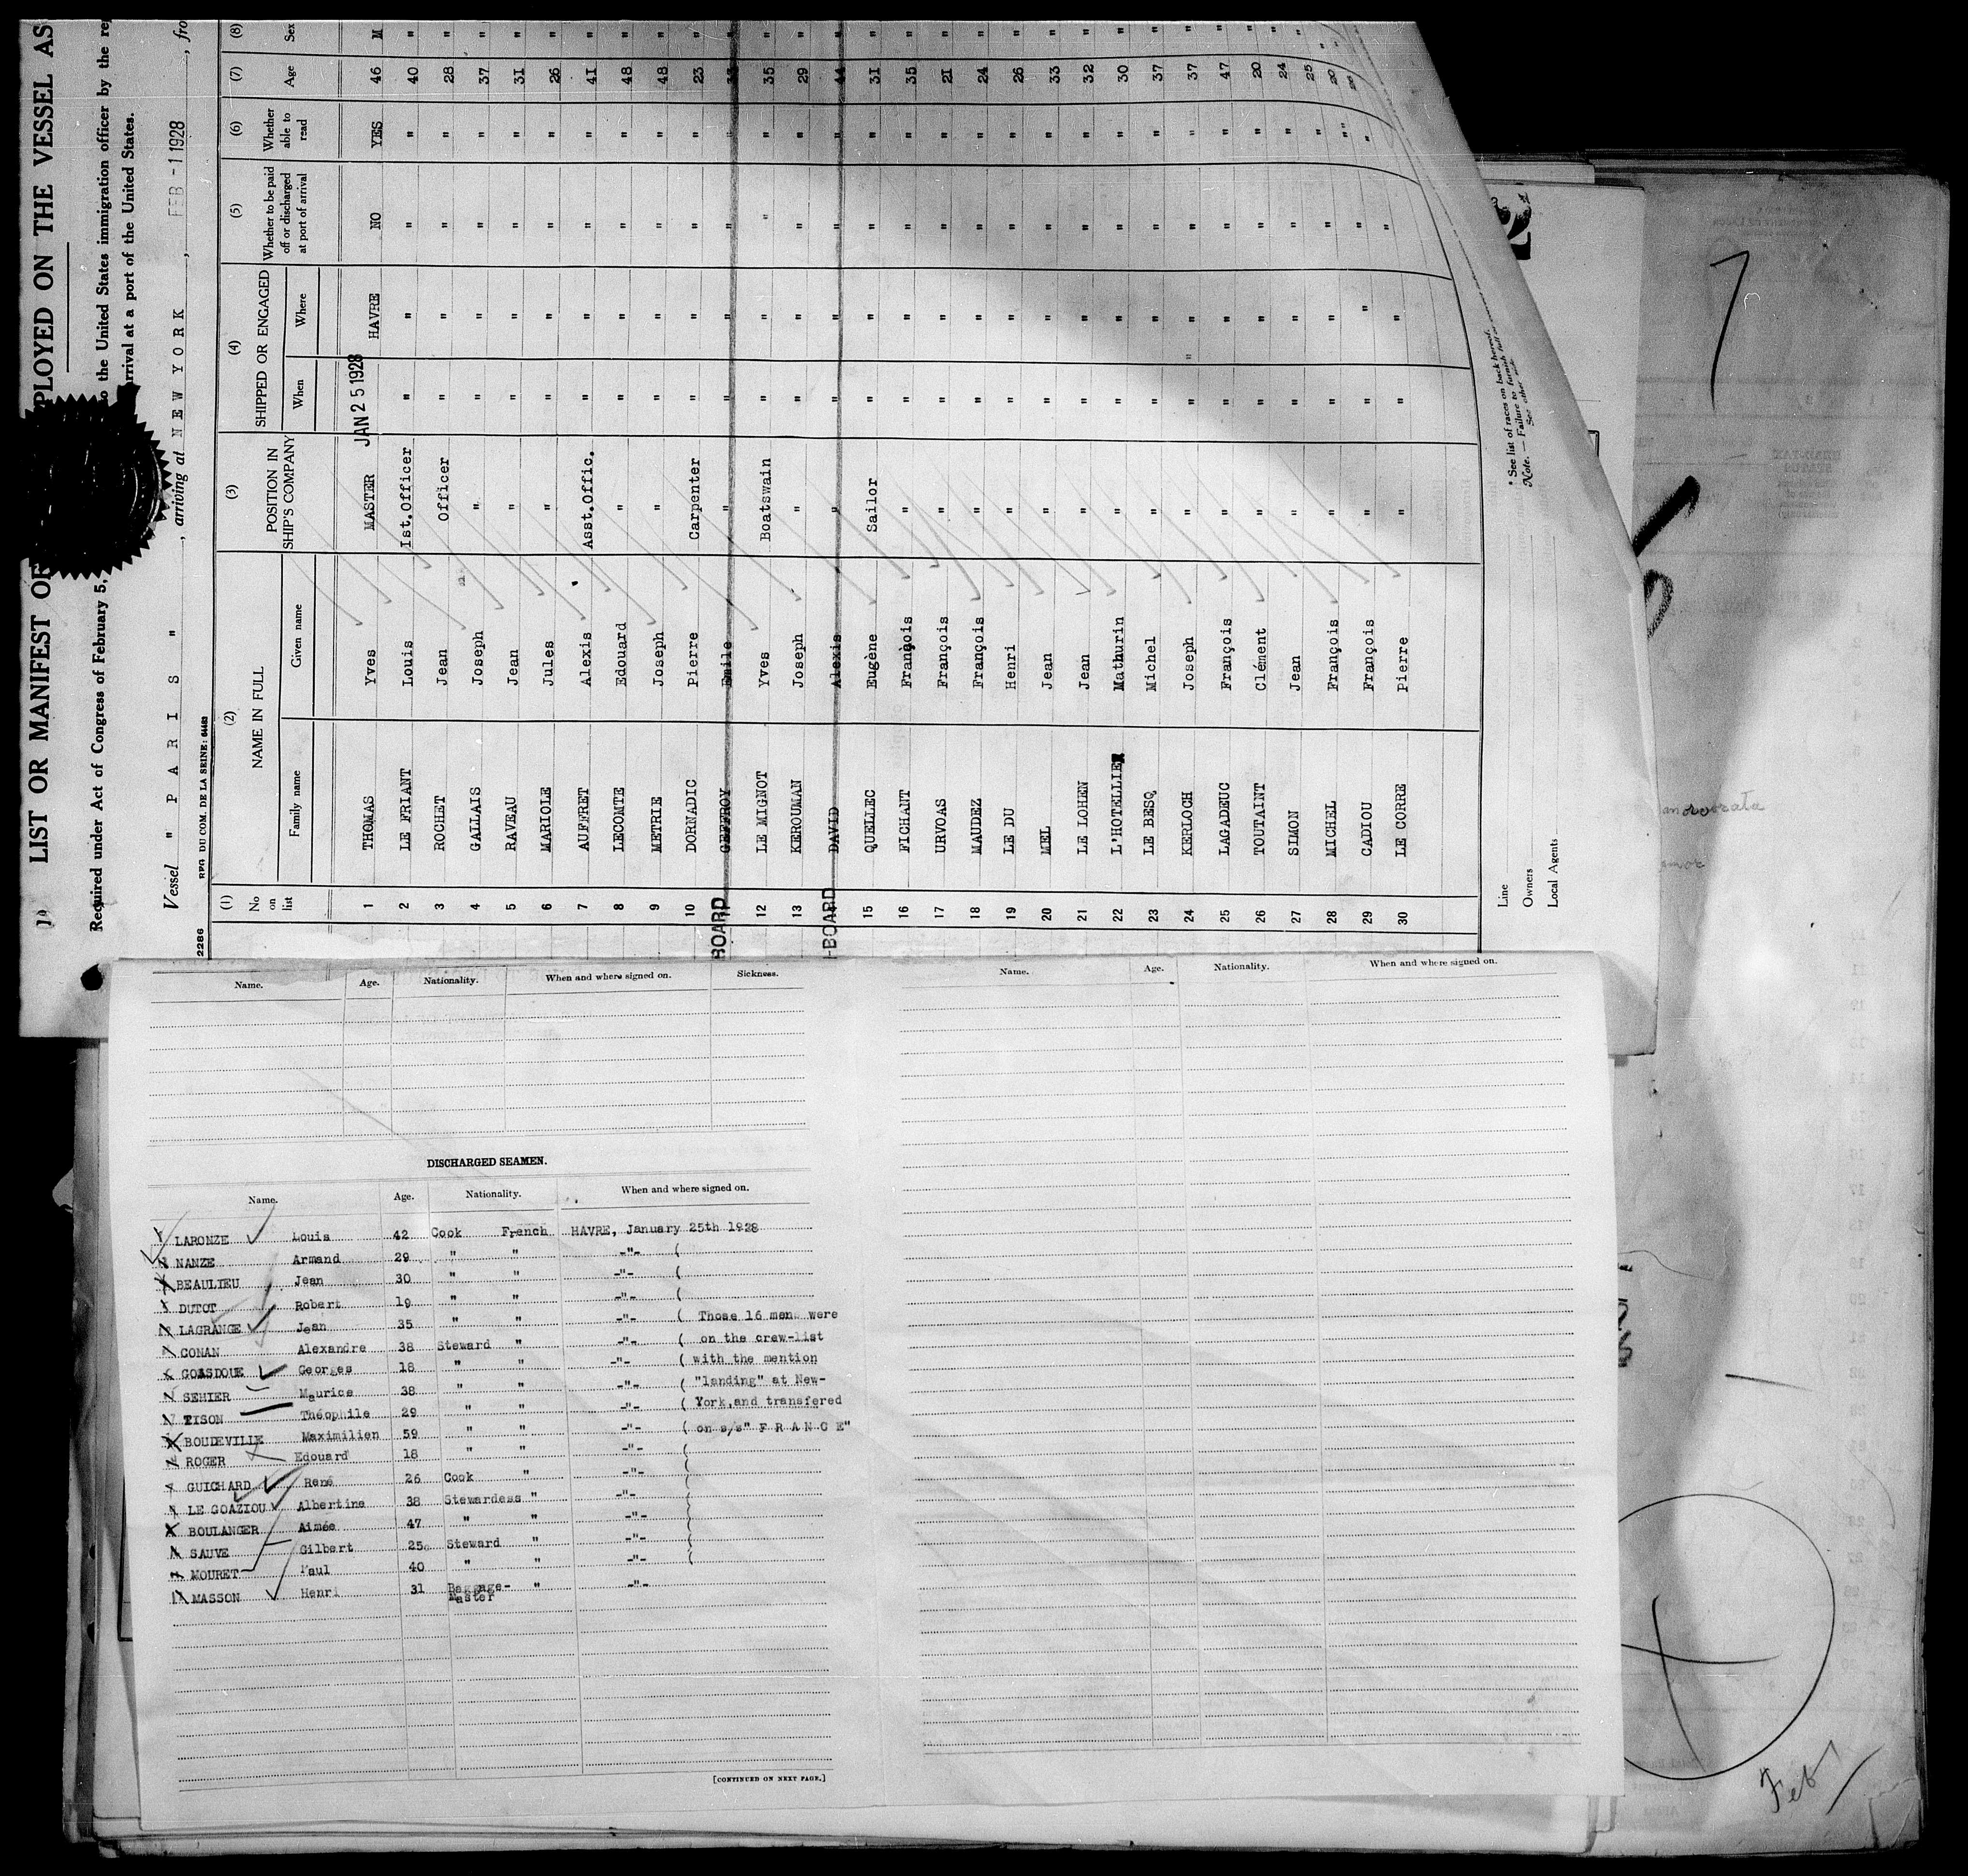 LIST OR MANIFEST OF
PLOYED ON THE VESSEL AS
Required under Act of Congress of February 5,
to the United States immigration officer by the
arrival at a port of the United States.
Vessel " P A R I S "
, arriving at NEW YORK , FEB -1 1928 , fro
2286 RFG DU COM. DE LA SEINE: 64483
(1) (2) (3) (4) (5) (6) (7) (8)
No on list NAME IN FULL POSITION IN SHIP'S COMPANY SHIPPED OR ENGAGED Whether to be paid off or discharged at port of arrival Whether able to read Age Sex
Family name Given name When Where
1 THOMAS Yves MASTER JAN 25 1928 HAVRE NO YES 46 M
2 LE FRIANT Louis Ist.Officer " " " " 40 "
3 ROCHET Jean Officer " " " " 28 "
4 GALLAIS Joseph " " " " " 37 "
5 RAVEAU Jean " " " " " 31 "
6 MARIOLE Jules " " " " " 26 "
7 AUFFRET Alexis Asst.Offic. " " " " 41 "
8 LECOMTE Edouard " " " " " 48 "
9 METRIE Joseph " " " " " 48 "
10 DORNADIC Pierre Carpenter " " " " 23 "
BOARD GEFFROY Emile " " " " "
12 LE MIGNOT Yves Boatswain " " " " 35 "
13 KEROUMAN Joseph " " " " " 29 "
-BOARD DAVID Alexis " " " " " 44 "
15 QUELLEC Eugène Sailor " " " " 31 "
16 FICHANT François " " " " " 35 "
17 URVOAS François " " " " " 21 "
18 MAUDEZ François " " " " " 24 "
19 LE DU Henri " " " " " 26 "
20 MEL Jean " " " " " 33 "
21 LE LOHEN Jean " " " " " 32 "
22 L'HOTELLIE Mathurin " " " " " 30 "
23 LE BESQ Michel " " " " " 37 "
24 KERLOCH Joseph " " " " " 37 "
25 LAGADEUC François " " " " " 47 "
26 TOUTAINT Clément " " " " " 20 "
27 SIMON Jean " " " " " 24 "
28 MICHEL François " " " " " 25 "
29 CADIOU François " " " " " 20 "
30 LE CORRE Pierre " " "
Line
Owners
Local Agents
* See list of races on back hereof.
Note. — Failure to furnish full
See other side
Name. Age. Nationality. When and where signed on. Sickness.
DISCHARGED SEAMEN.
Name. Age. Nationality. When and where signed on.
LARONZE Louis 42 Cook French HAVRE, January 25th 1928
NANZE Armand 29 " " -"- (
BEAULIEU Jean 30 " " -"- (
DUTOT Robert 19 " " -"- (
LAGRANGE Jean 35 " " -"- ( Those 16 men were
CONAN Alexandre 38 Steward " -"- ( on the crew-list
GOASDOUE Georges 18 " " -"- ( with the mention
SEHIER Maurice 38 " " -"- ( "landing" at New-
TISON Théophile 29 " " -"- ( York,and transfered
BOUDEVILLE Maximilien 59 " " -"- ( on s/s" F R A N C E"
ROGER Edouard 18 " " -"- (
GUICHARD René 26 Cook " -"- (
LE GOAZIOU Albertine 38 Stewardess " -"- (
BOULANGER Aimée 47 " " -"- (
SAUVE Gilbert 25 Steward " -"- (
MOURET Paul 40 " " -"- (
MASSON Henri 31 Baggage- " -"-
Master
[CONTINUED ON NEXT PAGE.]
Name. Age. Nationality. When and where signed on.
7
Feb 1